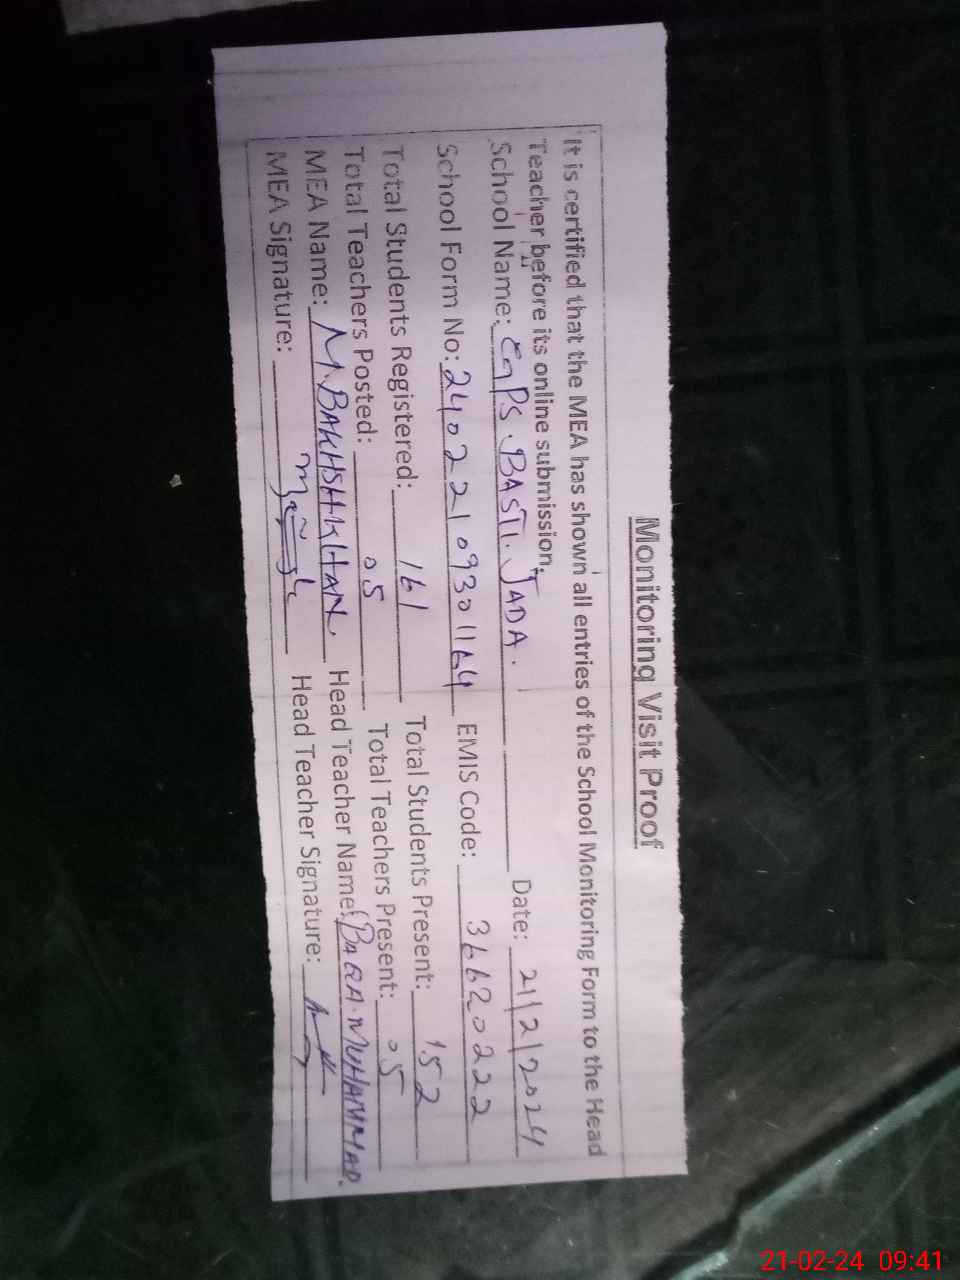 Monitoring Visit Proof
It is certified that the MEA has shown all entries of the School Monitoring Form to the Head
Teacher before its online submission.
School Name: GPS. BASTI. JADA. Date: 21/2/2024
School Form No: 24022109301164 EMIS Code: 36620222
Total Students Registered: 161 Total Students Present: 152
Total Teachers Posted: 05 Total Teachers Present: 05
MEA Name: M. BAKHSH KHAN. Head Teacher Name: MUHAMMAD.
MEA Signature: Head Teacher Signature:
21-02-24 09:41